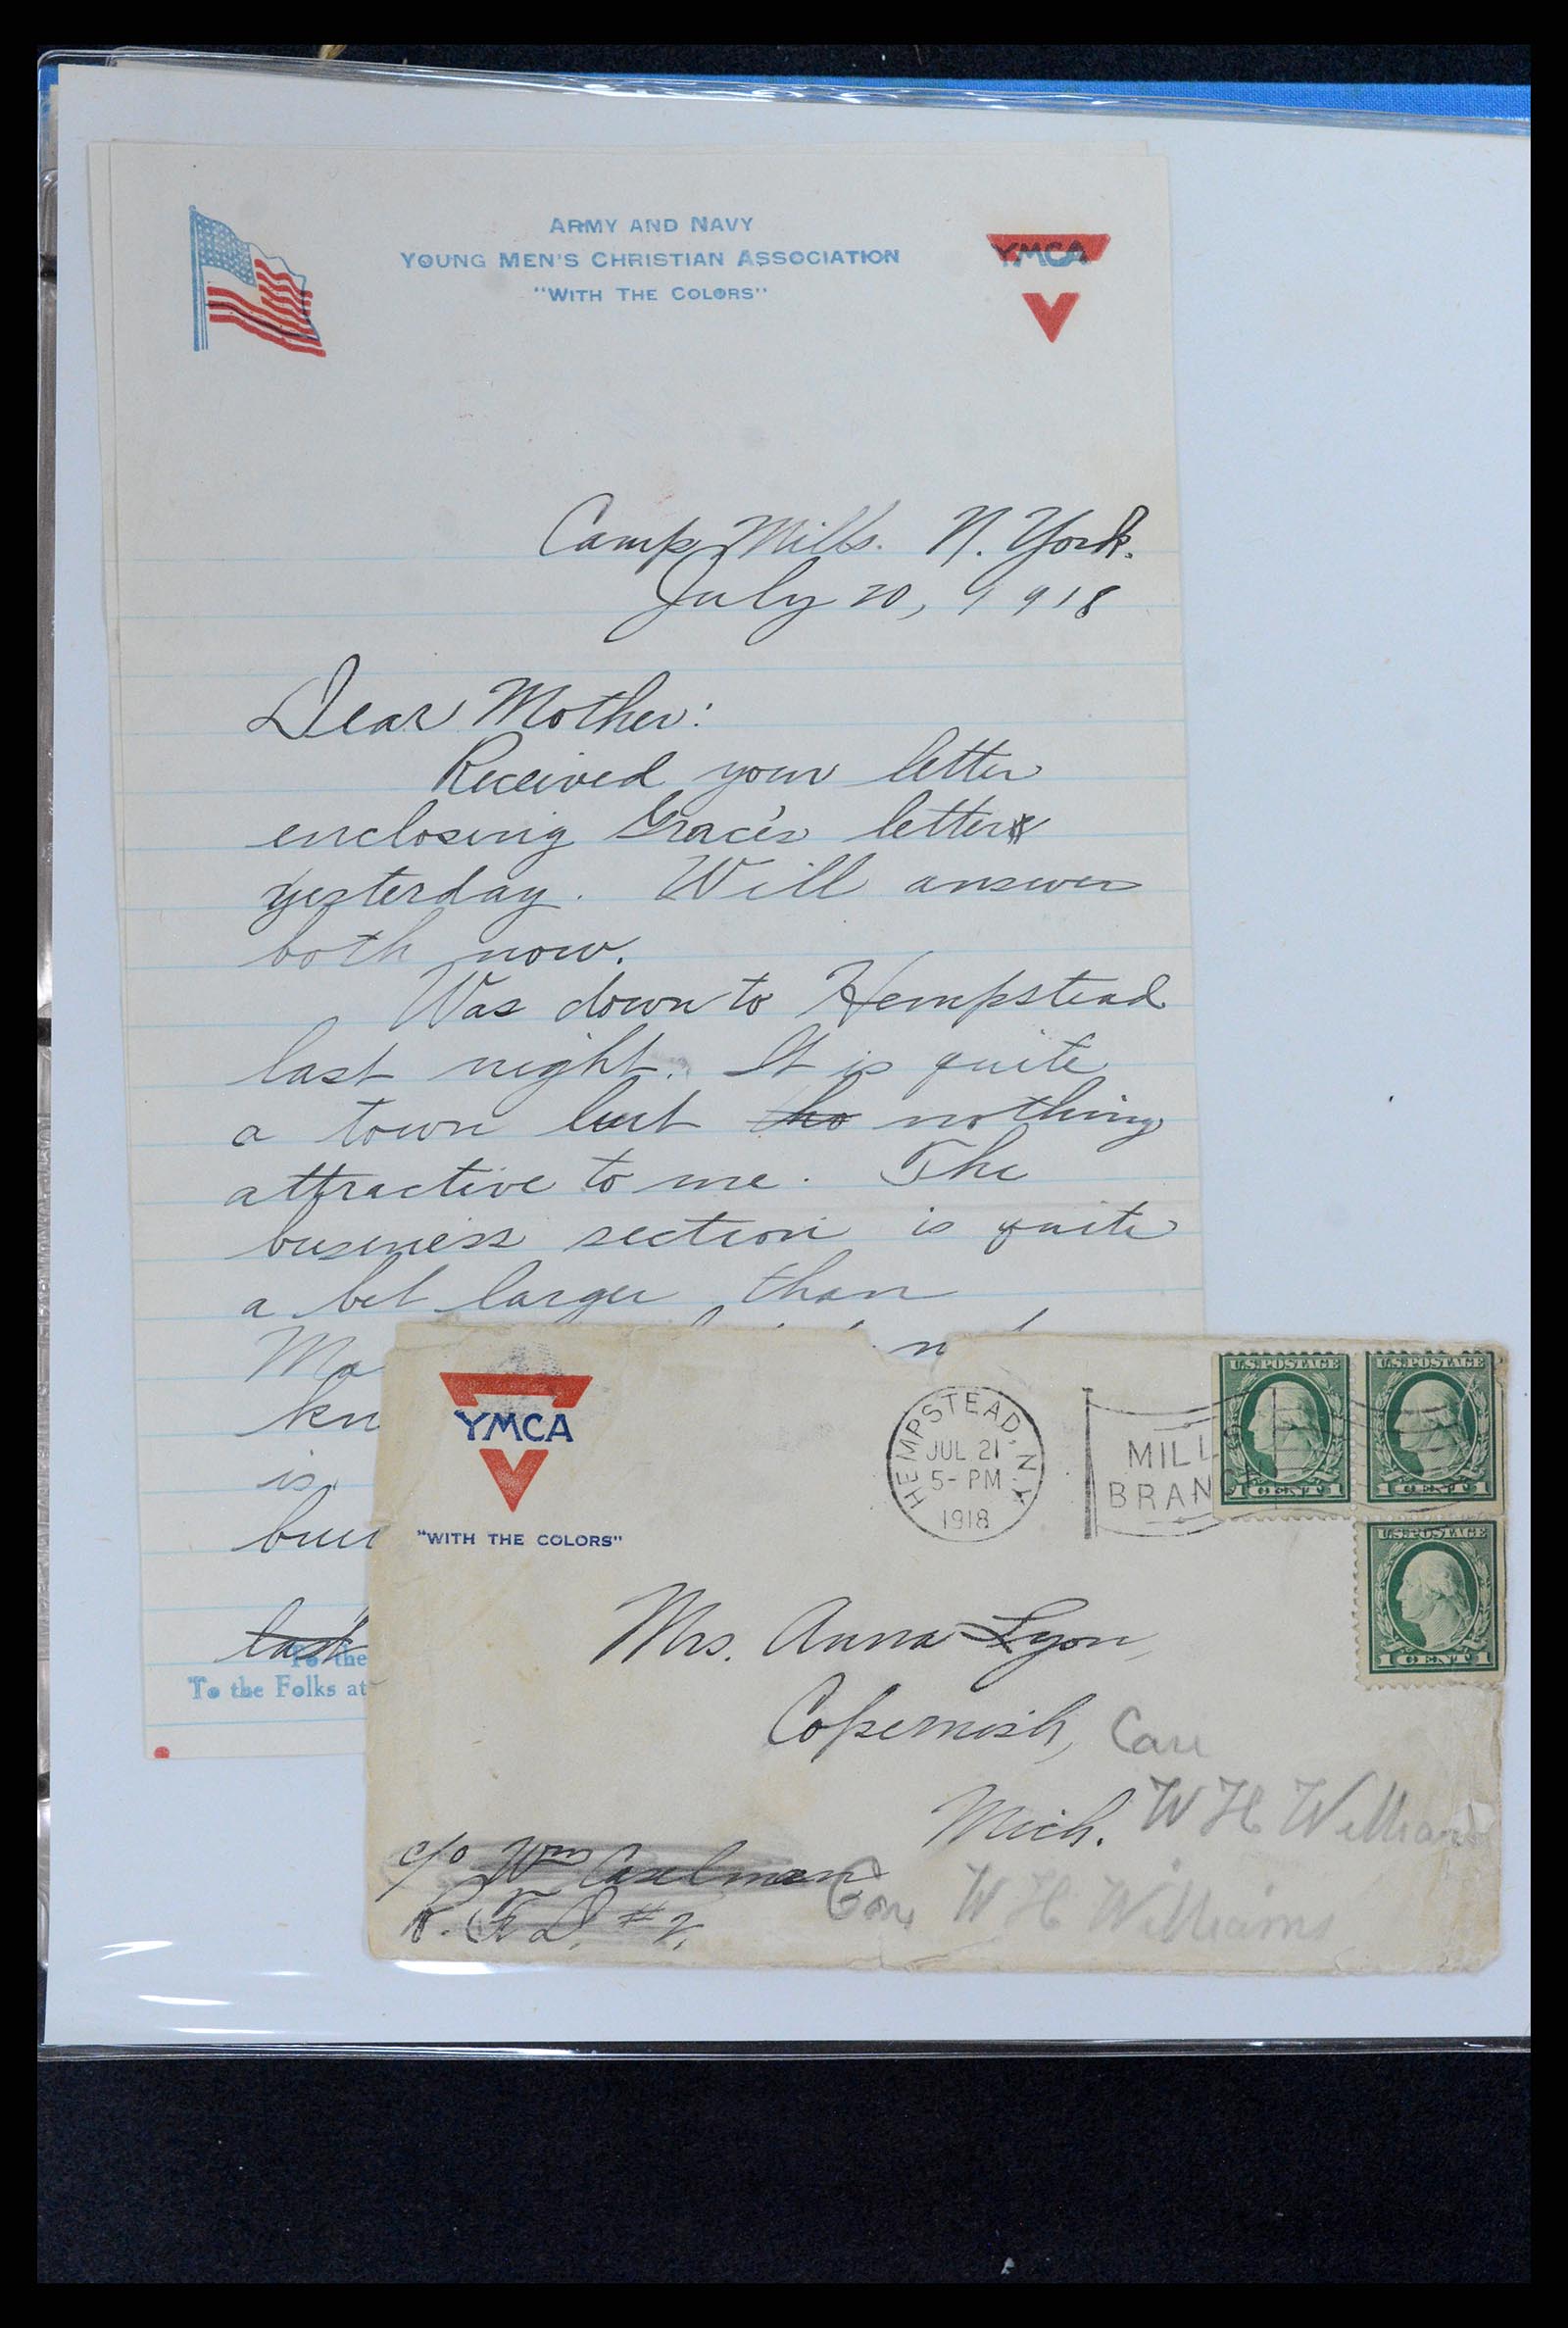 ARMY AND NAVY
YOUNG MEN'S CHRISTIAN ASSOCIATION
"WITH THE COLORS"
YMCA
Camp Mills. N. York.
July 20, 1918
Dear Mother:
Received your letter
enclosing Grace's letter
yesterday. Will answer
both now.
Was down to Hempstead
last night. It is quite
a town but ho nothing
attractive to me. The
business section is quite
a bit larger than
Ma
kn
is
last
To the
To the Folks at
YMCA
"WITH THE COLORS"
HEMPSTEAD, N.Y.
JUL 21
5-PM
1918
MILLS
BRANCH
U.S. POSTAGE
1 CENT 1
U.S. POSTAGE
1 CENT 1
U.S. POSTAGE
1 CENT 1
Mrs. Anna Lyon,
Copemish, Care
Mich. W H Williams
c/o Wm Caselman
R. F. D. #2.
Care W H Williams